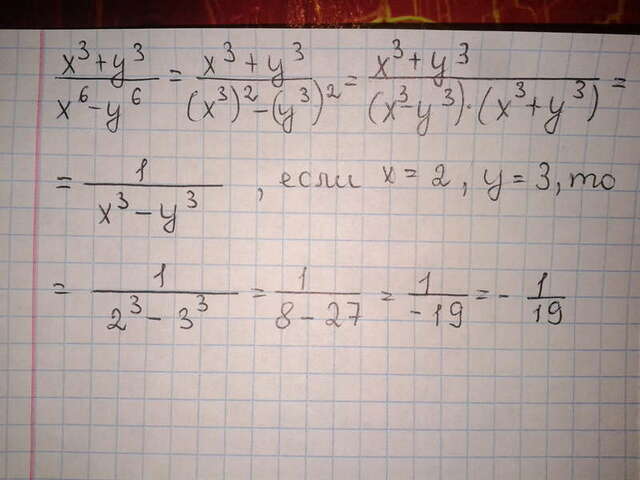 x³+y³/x⁶-y⁶ = x³+y³/(x³)²-(y³)² = x³+y³/(x³-y³)·(x³+y³) =
= 1/x³-y³ , если x=2, y=3, то
= 1/2³-3³ = 1/8-27 = 1/-19 = - 1/19